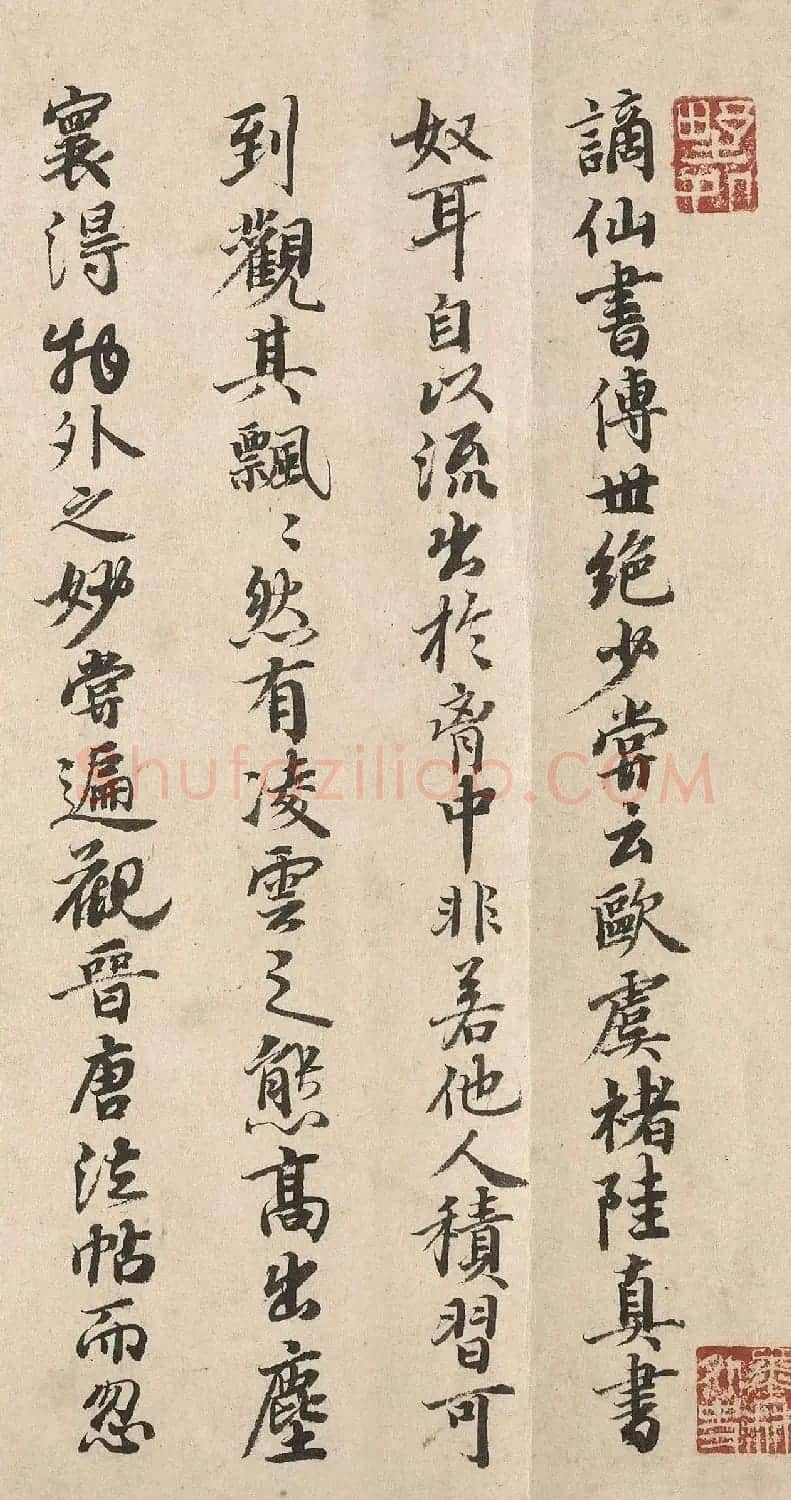 謫仙書傳世絕少嘗云歐虞褚陸真書
奴耳自以流出於胷中非若他人積習可
到觀其飄〻然有凌雲之態高出塵
寰得物外之妙嘗遍觀晉唐法帖而忽
Shufaziliao.COM